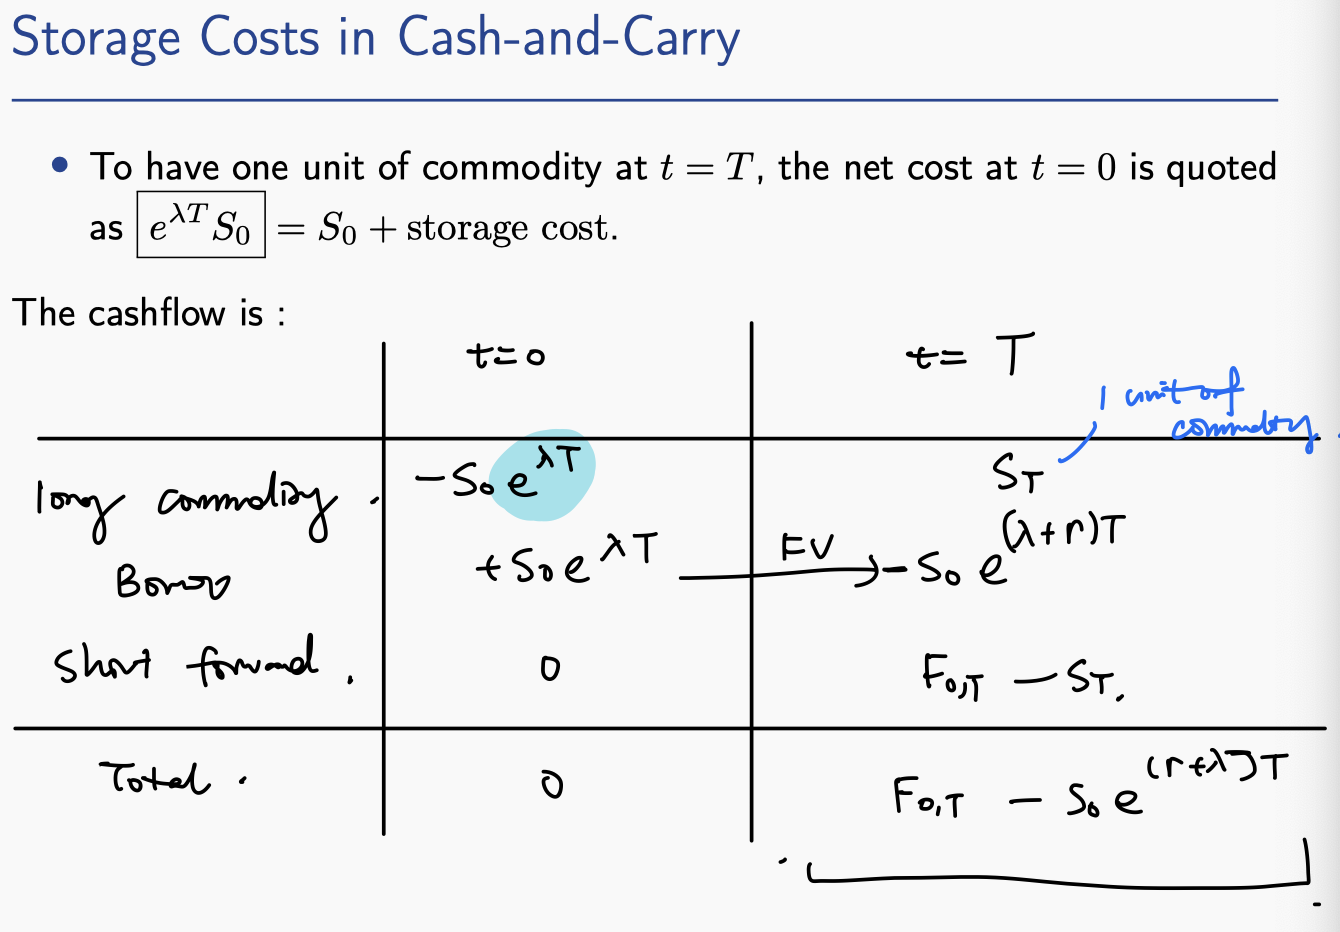 Storage Costs in Cash-and-Carry
• To have one unit of commodity at t = T, the net cost at t = 0 is quoted
as e^{λT} S₀ = S₀ + storage cost.
The cashflow is :
t=0 t= T
1 unit of
commodity.
long commodity. -S₀ e^{λT} S_T
Borrow +S₀ e^{λT} FV → -S₀ e^{(λ+r)T}
Short forward. 0 F_{0,T} - S_T.
Total. 0 F_{0,T} - S₀ e^{(r+λ)T}